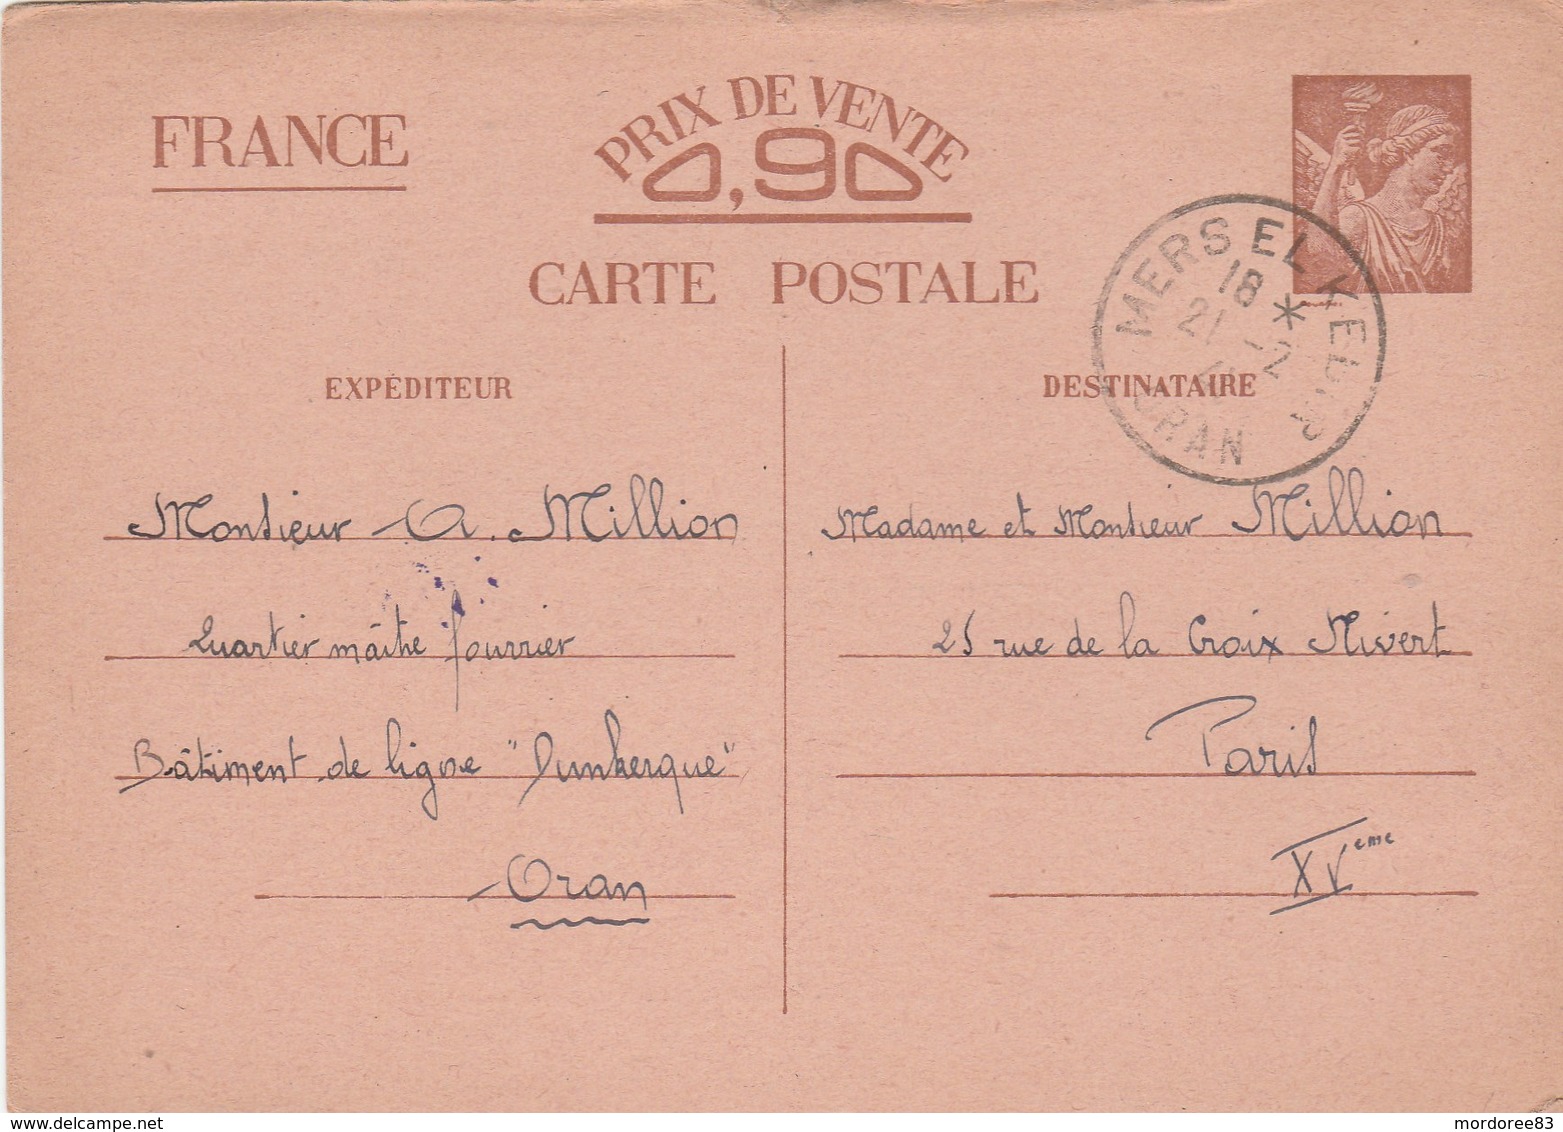 FRANCE
PRIX DE VENTE
0,90
CARTE POSTALE
MERS EL KEBIR
18 *
21 -2
ORAN
EXPÉDITEUR
Monsieur A. Million
Quartier maître fourrier
Bâtiment de ligne "Dunkerque"
Oran
DESTINATAIRE
Madame et Monsieur Million
25 rue de la Croix Nivert
Paris
XVeme
www.delcampe.net
mordoree83